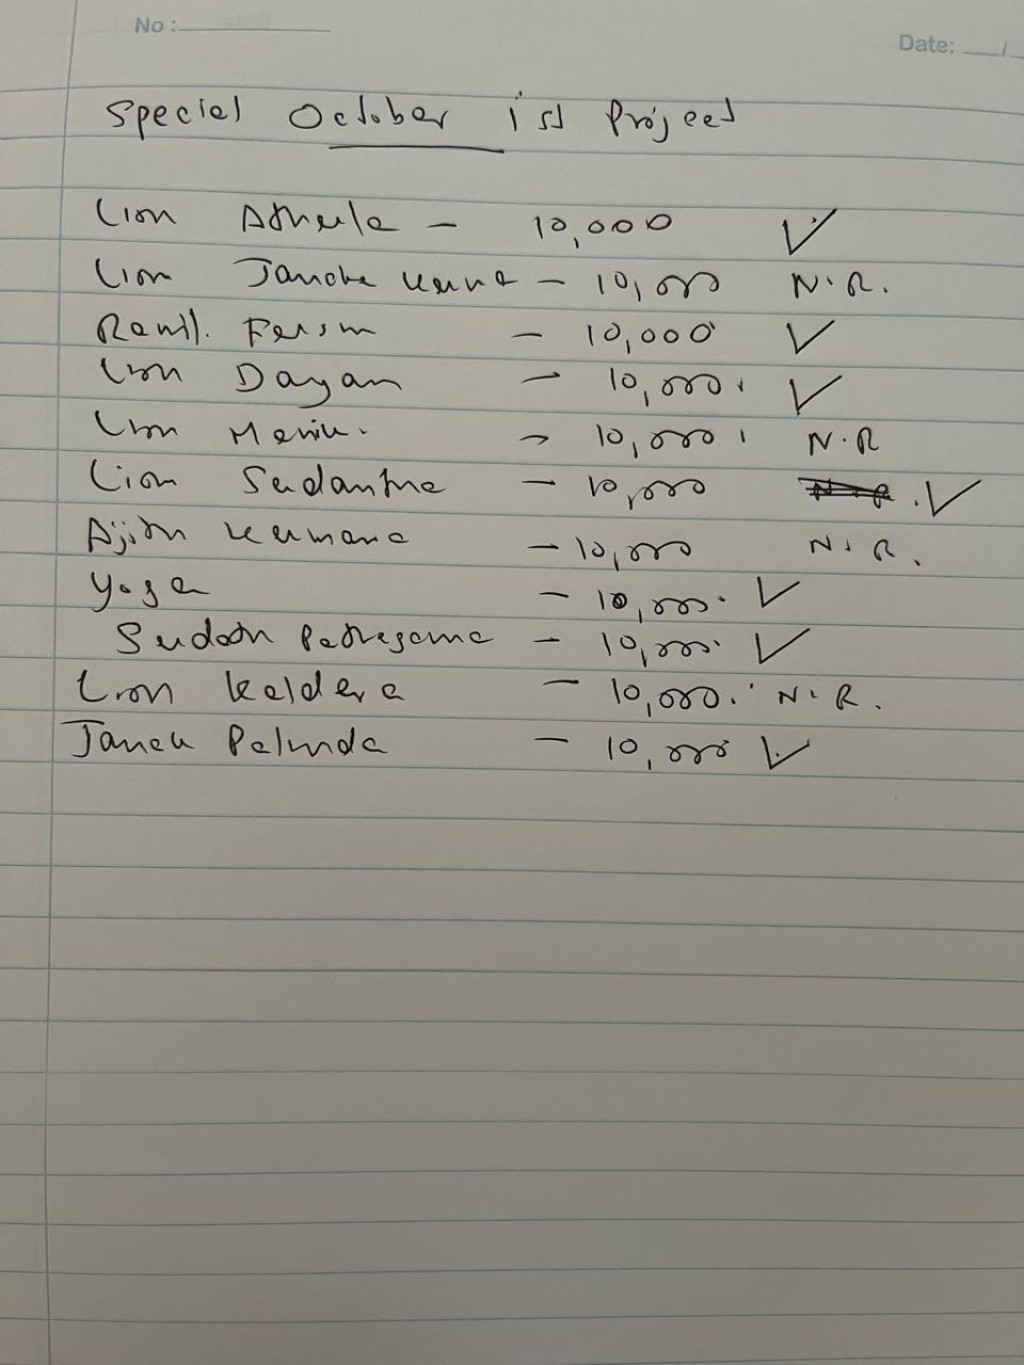 No :
Date: __/
Special October 1st Project
Lion Athula - 10,000 ✓
Lion Janaka - 10,000 N.R.
Ranil. - 10,000 ✓
Lion Dayan - 10,000. ✓
Lion - 10,000 N.R
Lion Sudantha - 10,000 N.R. ✓
Ajith Kumara - 10,000 N.R.
Yoga - 10,000. ✓
Sudath Pathegama - 10,000. ✓
Lion Kaldera - 10,000. N.R.
Janak Palinda - 10,000 ✓